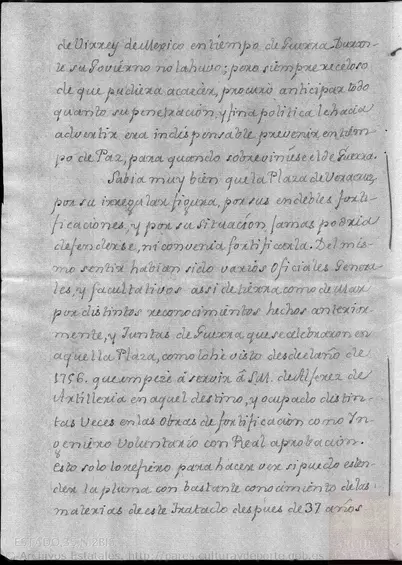 de Virrey de Mexico en tiempo de Guerra. Duran-
te su Govierno no la huvo; pero siempre receloso
de que pudiera acaecer, procuró anticipar todo
quanto su penetración, y fina politica le hacia
advertir era indispensable prevenir en tiem-
po de Paz, para quando sobreviniese el de Guerra.
Sabia muy bien que la Plaza de Veracruz,
por su irregular figura, por sus endebles forti-
ficaciones, y por su situación, jamas podria
defenderse, ni convenia fortificarla. Del mis-
mo sentir habian sido varios Oficiales Genera-
les, y facultativos assi de tierra como de Mar
por distintos reconocimientos hechos anterior-
mente, y Juntas de Guerra que se celebraron en
aquella Plaza, como lo hé visto desde el año de
1756. que empezé á servir á S.M. de Alferez de
Artilleria en aquel destino, y ocupado distin-
tas veces en las Obras de fortificación como Yn-
geniero Voluntario con Real aprobación.
Esto solo lo refiero para hacer ver si puedo esten-
der la pluma con bastante conocimiento de las
materias de este Tratado despues de 37 años